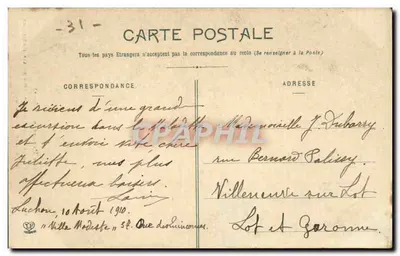 -31-
CARTE POSTALE
Tous les pays Etrangers n'acceptent pas la correspondance au recto (Se renseigner à la Poste)
CORRESPONDANCE
ADRESSE
Je reviens d'une grande
excursion dans la
et t'envoie vite chère
Juliette, mes plus
affectueux baisers.
Luchon, 10 Août 1910.
"Villa Modeste" Rue
Mademoiselle J. Dubarry
rue Bernard Palissy
Villeneuve sur Lot
Lot et Garonne.
CPARHIFI